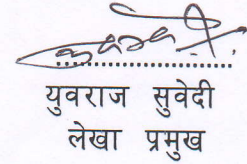 युवराज सुवेदी
लेखा प्रमुख